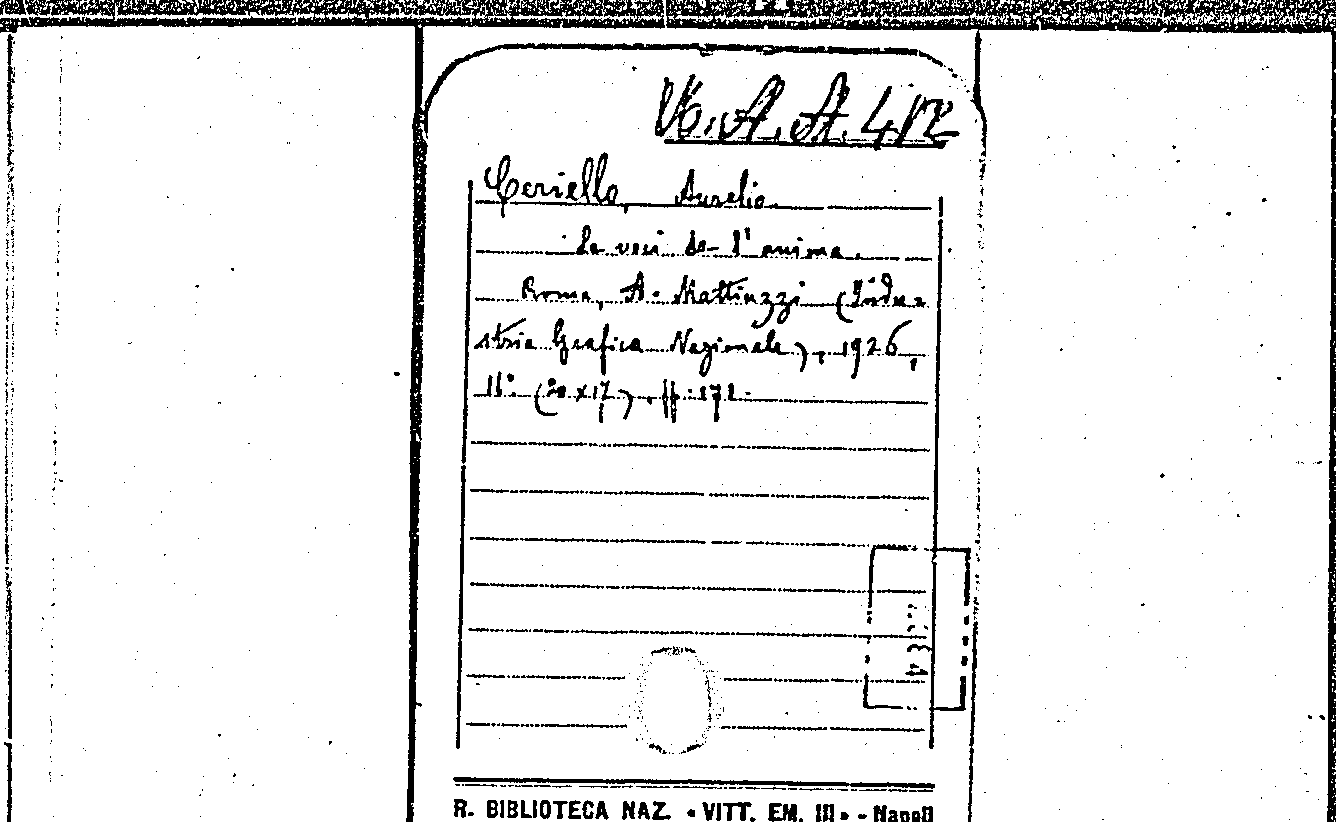 A. A. 412
Ceriello, Aurelio.
Le voci de l'anima.
Roma, A. Mattiuzzi (Indu=
stria Grafica Nazionale), 1926,
16° (20x17), pp. 171.
R. BIBLIOTECA NAZ. « VITT. EM. III » - Napoli